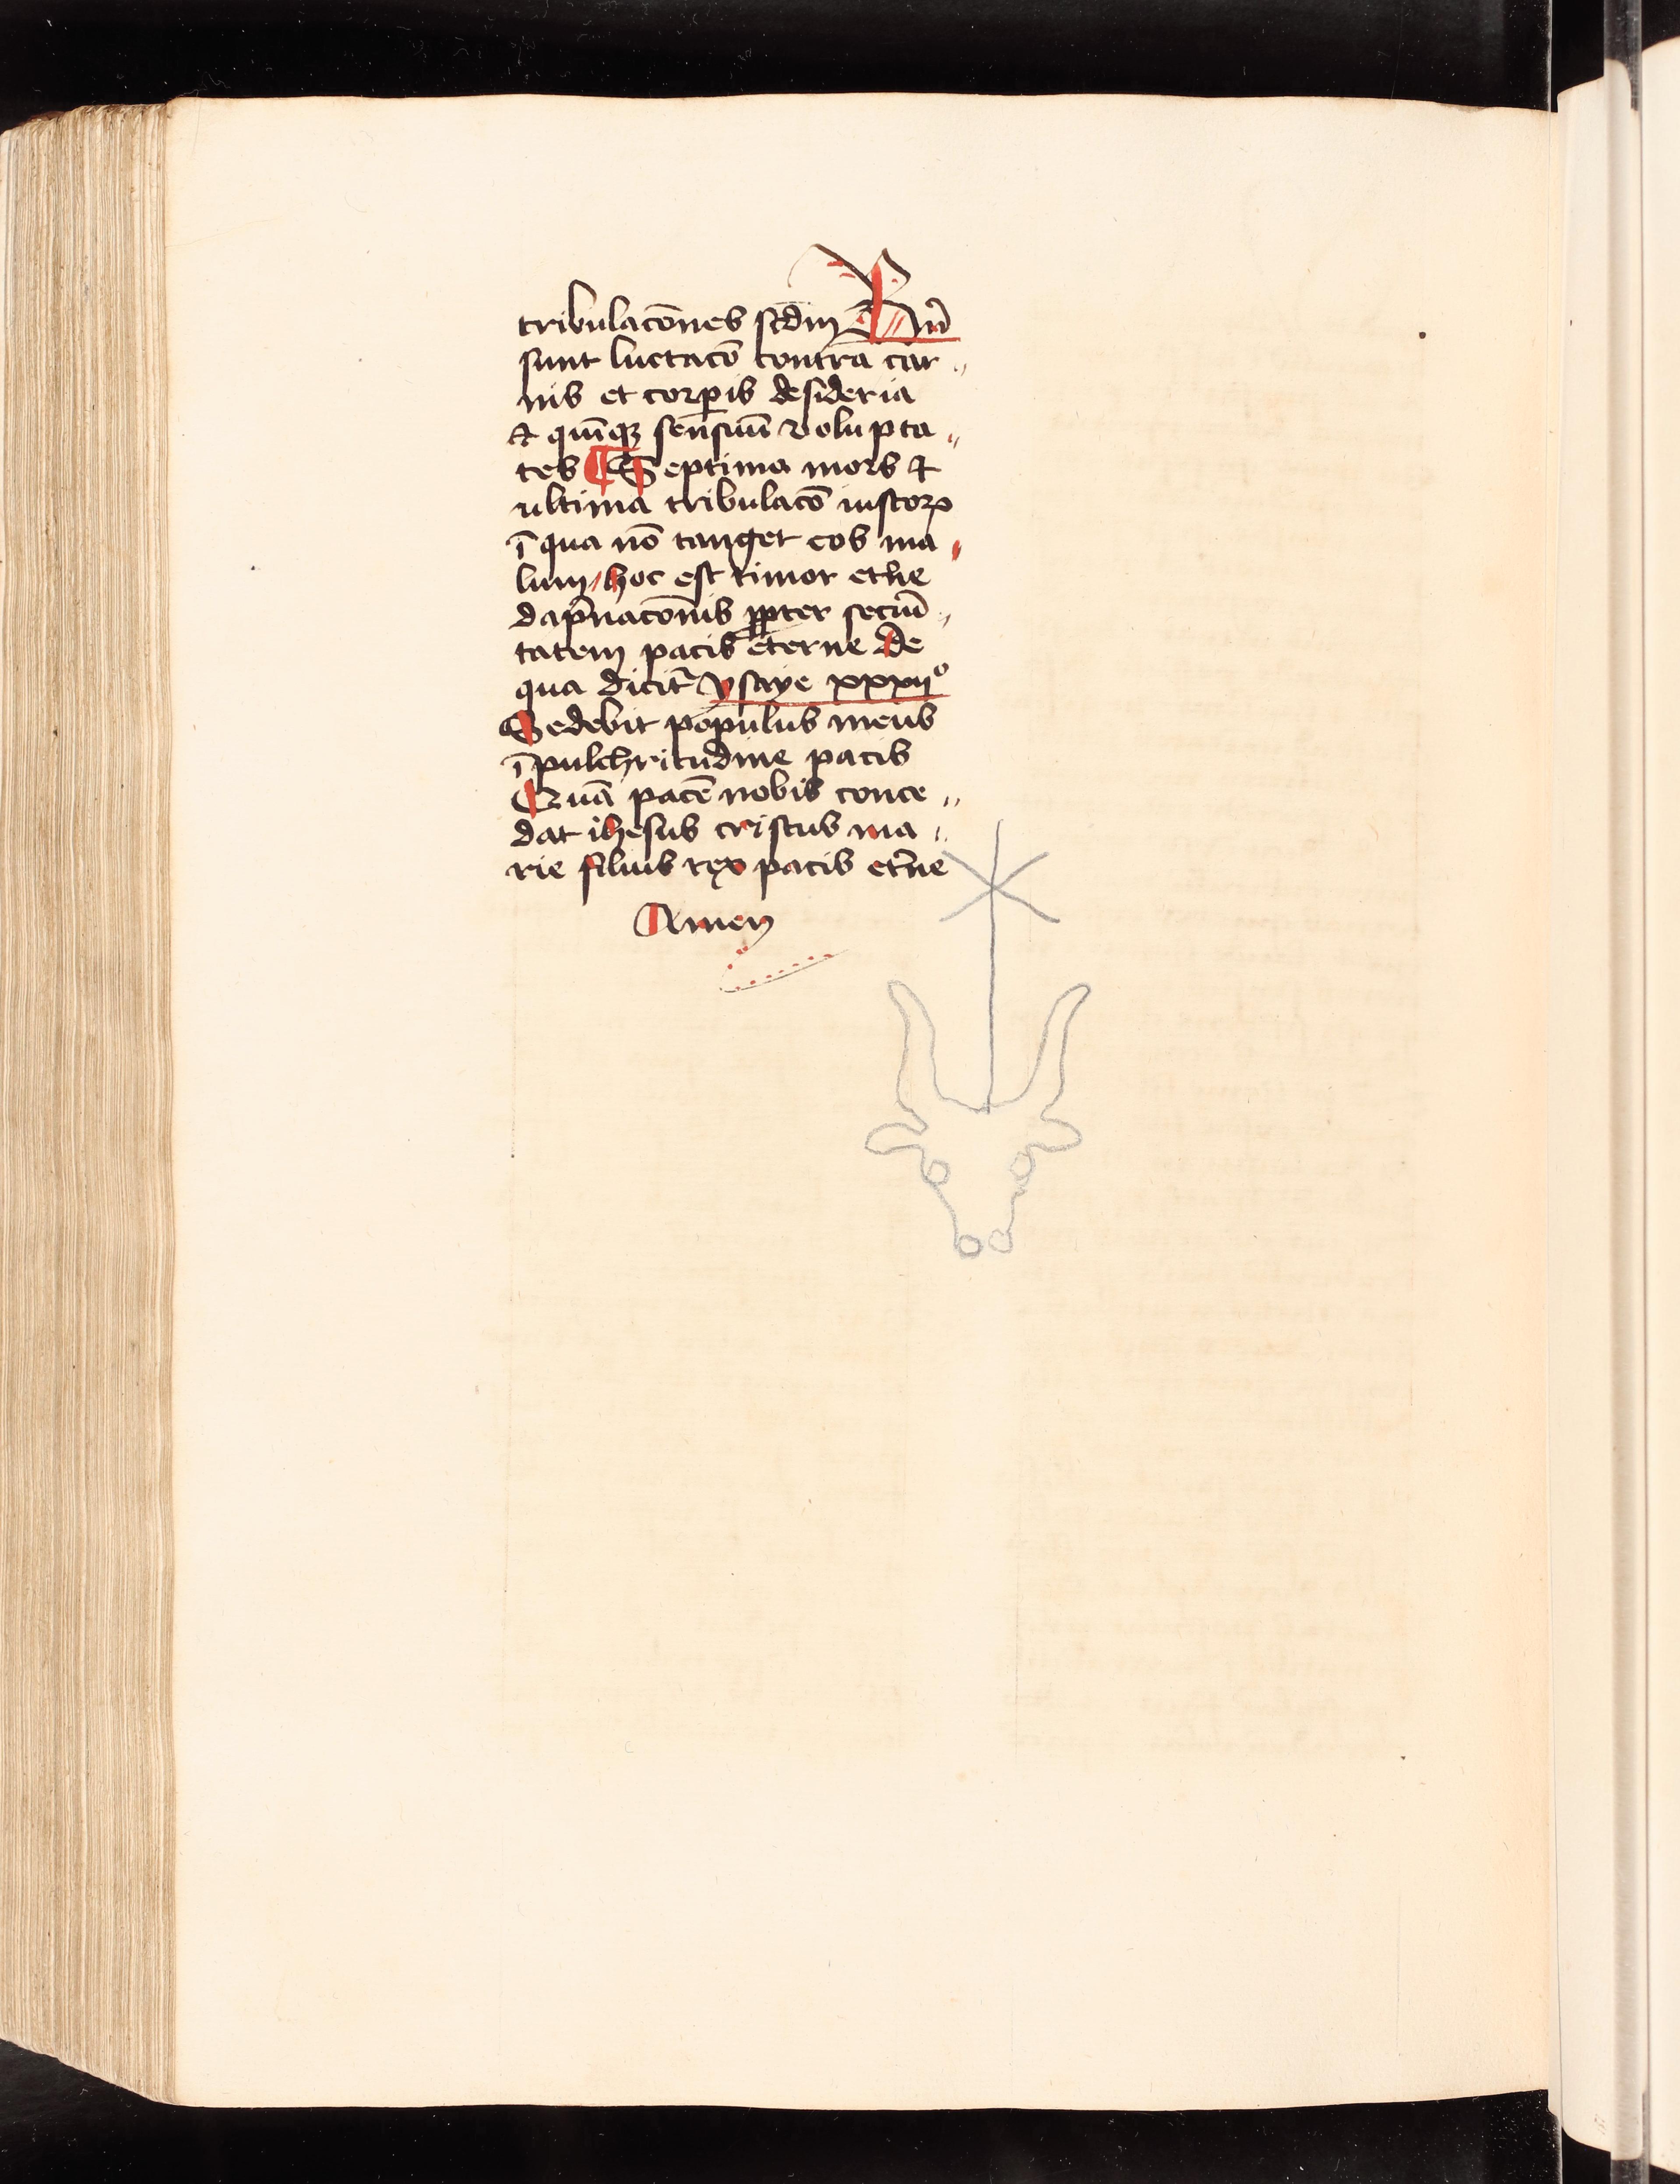 tribulac̄ones sc̄dm Bn̄
sunt luctac̄o contra car〃
nis et corꝑis desideria
⁊ quīqꝫ sensuū volupta〃
tes ¶ Septima mors ⁊
ultima tribulac̄o iustoꝝ
ī qua nō tanget eos ma
lum / hoc est timor et̄ne
dāpnac̄onis ꝓpter secui᷑〃
tatem pacis eterne De
qua dicit᷑ ysaye xxxii°
Sedebit populus meus
ī pulchritudine pacis
Quā pacē nobis conce〃
dat ihesus cristus ma〃
rie filius rex pacis et̄ne
Amen